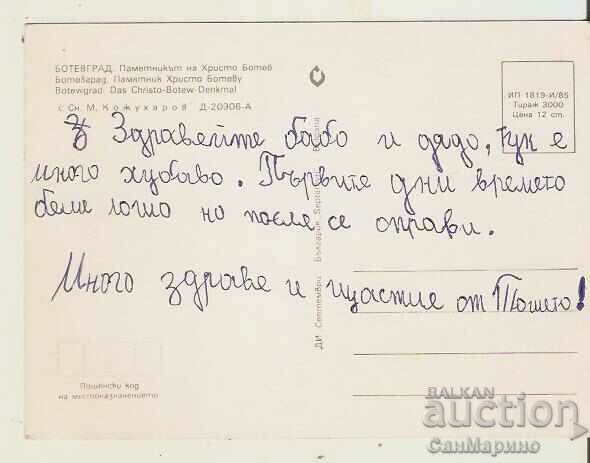 БОТЕВГРАД. Паметникът на Христо Ботев
Ботевград. Памятник Христо Ботеву
Botewgrad. Das Christo-Botew-Denkmal
с Сн. М. Кожухаров Д-20906-А
ИП 1819-И/85
Тираж 3000
Цена 12 ст.
Здравейте бабо и дядо, тук е
много хубаво. Първите дни времето
беше лошо но после се оправи.
Много здраве и щастие от Тошето!
ДИ Септември България Septemvri
Пощенски код
на местоназначението
BALKAN
auction
СанМарино